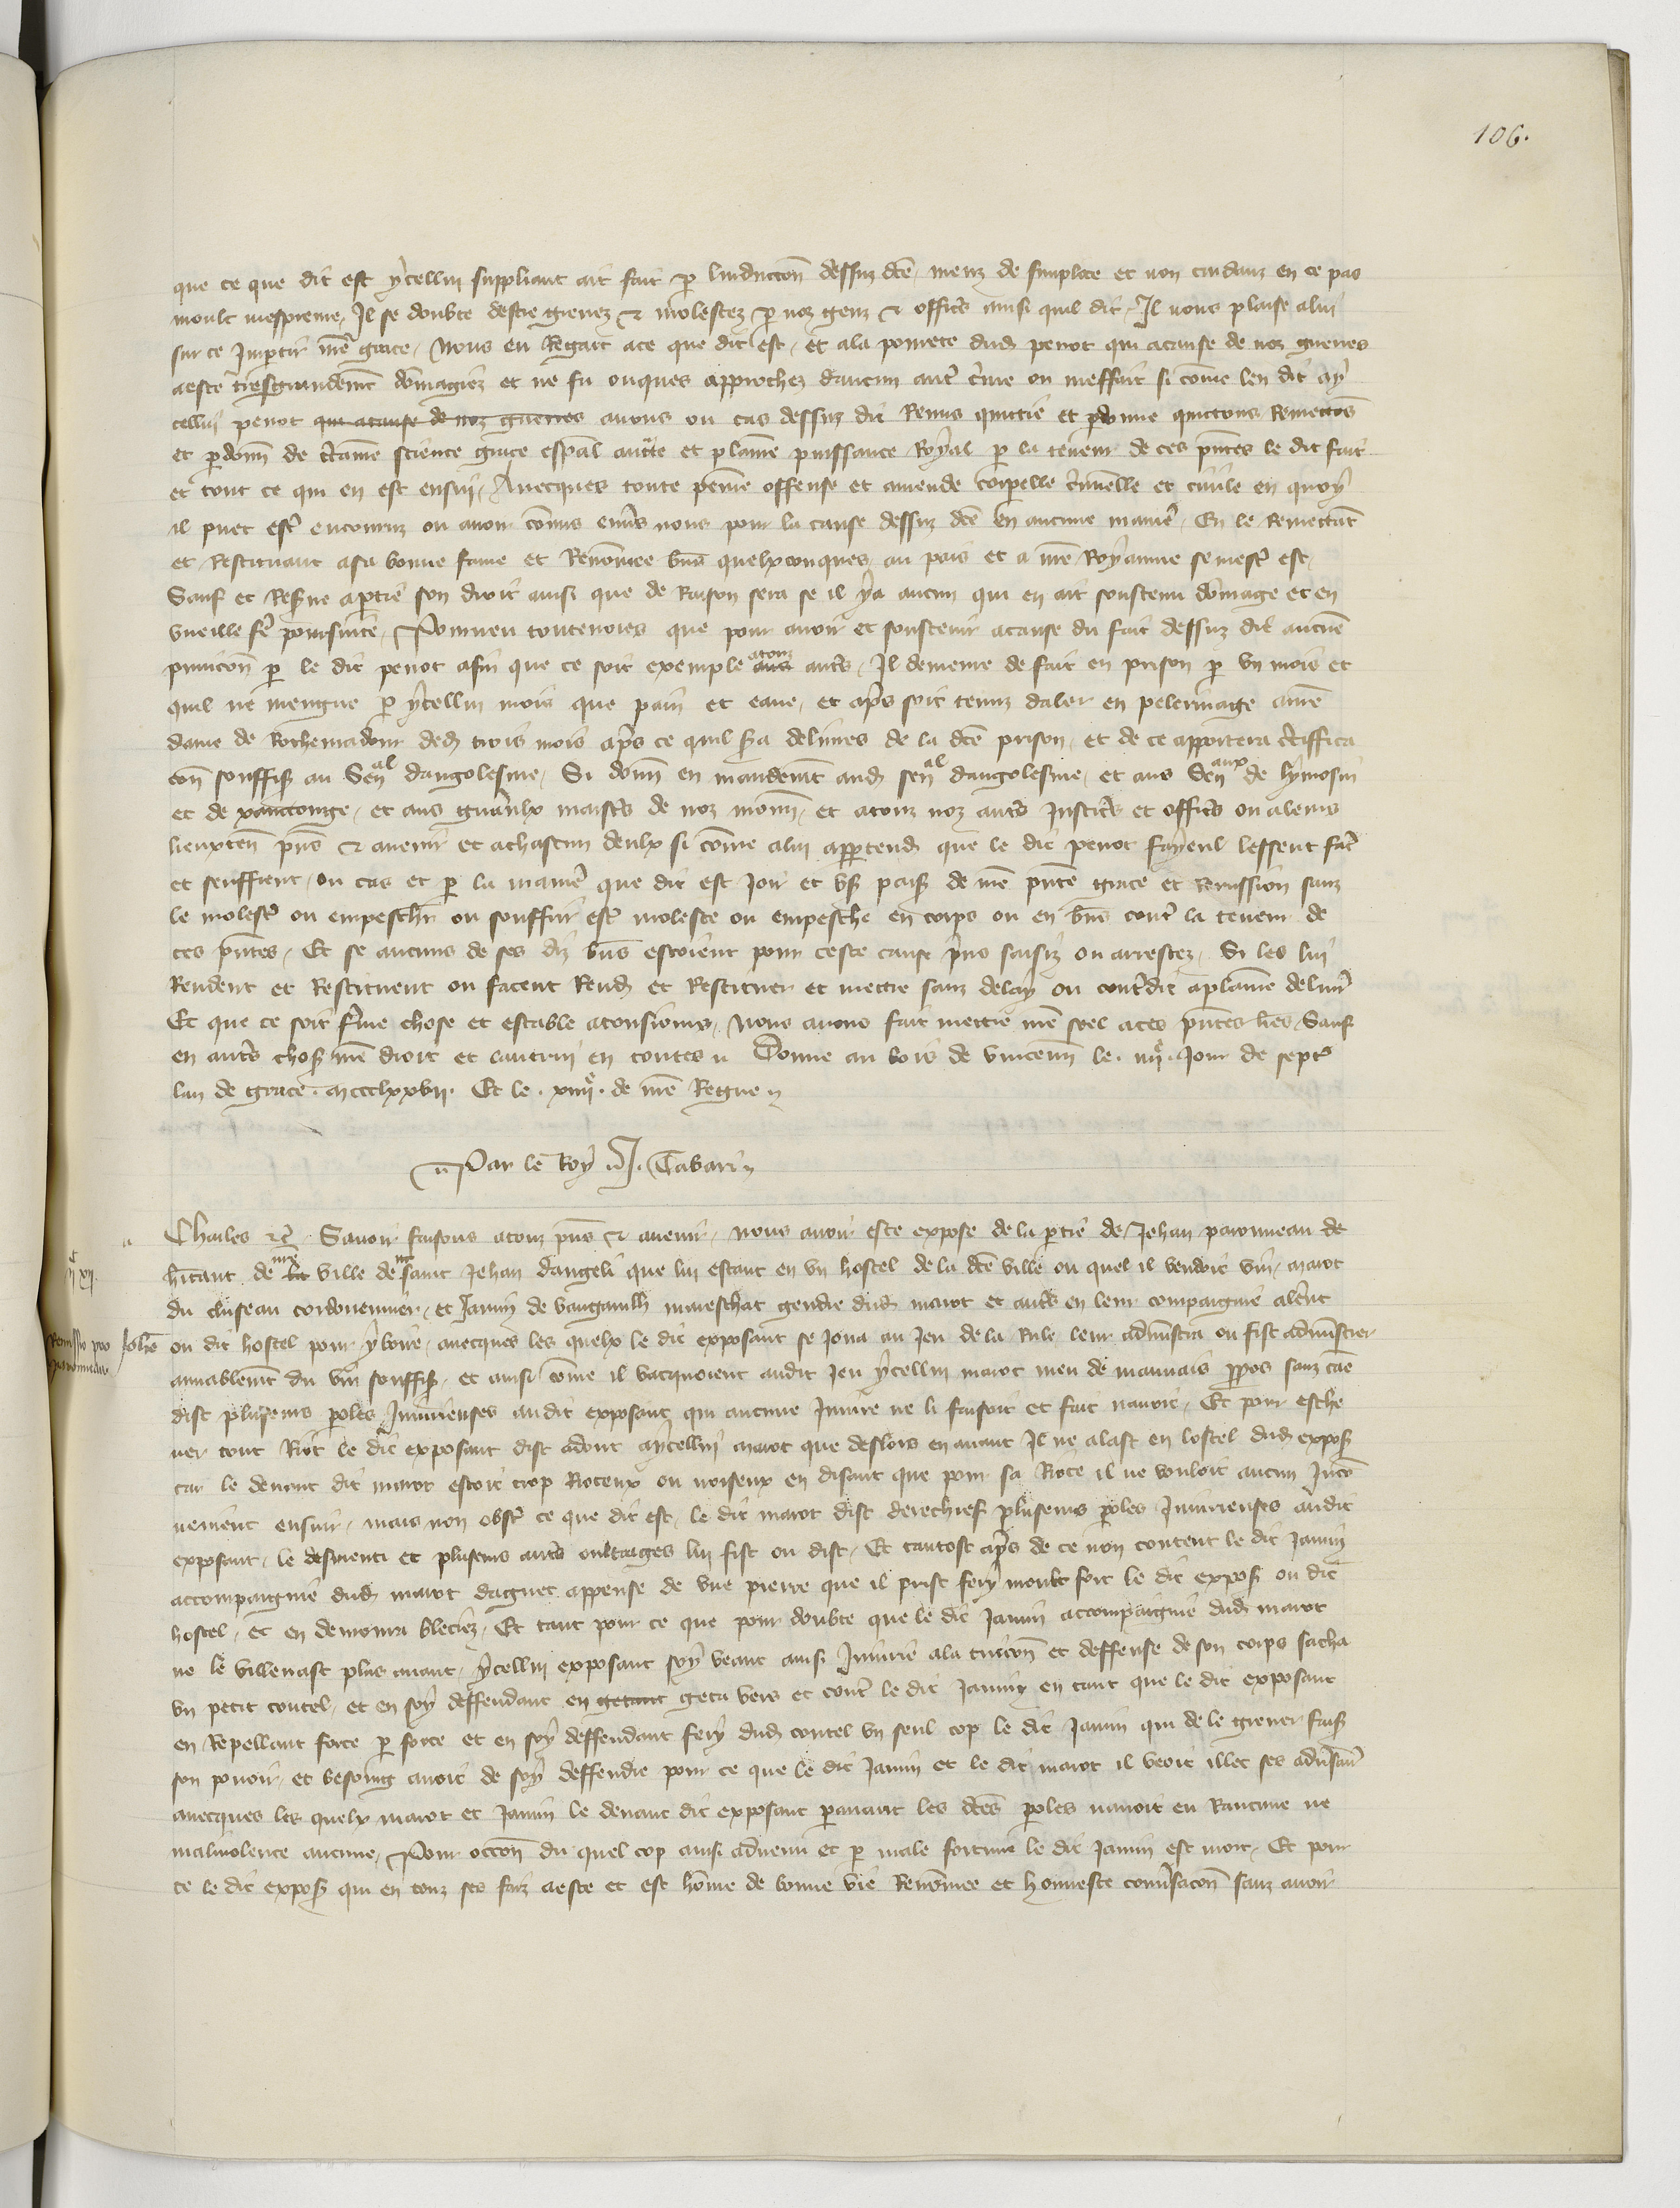 106.
que ce que dit est ycellui suppliant ait fait p linduccon dessuz dce meuz de simplece et non cuidanz en ce pas
moult mesprenre Il se doubte destre grevez & molestez p noz genz & offics ainsi quil dit Il nous plaise alui
sur ce Impartir nre grace Nous eu Regart ace que dit est et ala povrete dud perrot qui acause de noz guerres
aeste tresgrandemt domagiez et ne fu onques approchez daucun aut crime ou meffait si come len dit ay
cellui perrot qui acause de noz guerres avons ou cas dessuz dit Remis quittie et pdonne quittons Remettos
et pdonn de ctaine science grace espal auctte et plaine puissance Royal p la teneur de ces pntes le dit fait
et tout ce qui en est ensui Avecques toute peine offense et amende corpelle criminelle et civile en quoy
il puet estre encouruz ou avoir comis envs nous pour la cause dessuz dce en aucune maniere En le Remettat
et Restituant asa bonne fame et Renomee bns quelxconques au pais et a nre Royaume se mest est
Sauf et Reserve aptie son droit ainsi que de Raison sera se il ya aucun qui en ait soustenu domage et en
vueille fe poursuite Pourveu toutevoies que pour avoir et soustenir acause du fait dessuz dit aucune
punicon p le dit perrot afin que ce soit exemple aus atouz auts Il demeure de fait en prison p un mois et
quil ne mengue p ycellui mois que pain et eaue et aps soit tenuz daler en pelerinage anre
dame de Rochemadour dedz trois mois aps ce quil sera delivres de la dce prison et de ce apportera ctiffica
con souffis au Senal dangolesme Si donn en mandemt aud senal dangolesme et aus Senaux de lymosin
et de xanctonge et aus gnaulx maistrs de noz monn et atouz noz auts Justics et offics ou aleurs
lieuxten pns & avenir et achascun deulx si come alui appartend que le dit perrot facent lessent fac
et seuffrent ou cas et p la manie que dit est Joir et us pais de nre pnte grace et Remission sanz
le molest ou empeschr ou souffrir est moleste ou empesche en corps ou en bns cont la teneur de
ces pntes Et se aucuns de ses diz bns estoient pour ceste cause pris saisiz ou arrestez Si les lui
Rendent et Restituent ou facent Rendr et Restituer et mectre sanz delay ou contdit aplaine delivr
Et que ce soit ferme chose et estable atousiours Nous avons fait mettre nre seel aces pntes lres Sauf
en auts choses nre droit et lautrui en toutes Donne au bois de vincenn le iiije Jour de sept
lan de grace mccclxxvii Et le xiiije de nre Regne
Par le Roy J. Tabari
Charles etc Savoir faisons atouz pns & avenir Nous avoir este expose de la ptie de Jehan paronneau de
hitant de la nre ville de saint Jehan dangeli que lui estant en un hostel de la dce ville ou quel il vendoit vin marot
du cluseau cordouennier et Jamin de vaugaudh mareschat gendre dud marot et auts en leur compaignie alerent
ou dit hostel pour y boire avecques les quelx le dit exposant se Joua au Jeu de la Rule leur adminstra ou fist adminstrer
Remissio pro Johe
paronneau
amiablemt du vin souffis et ainsi come il vacquoient audit Jeu ycellui marot meu de mauvais ppos sanz cause
dist pluseurs poles Iniurieuses audit exposant qui aucune Iniure ne li faisoit et fait navoit Et pour esche
ver tout Riot le dit exposant dist adont aycellui marot que deslors en avant Il ne alast en lostel dud expos
car le devant dit marot estoit trop Roteux ou noiseux en disant que pour sa Rote il ne vouloit aucun Inco
venient ensuir mais non obst ce que dit est le dit marot dist derechief pluseurs poles Iniurieuses audit
exposant le desmenti et pluseurs auts oultrages lui fist ou dist Et tantost aps de ce non content le dit Jamin
accompaignie dud marot daguet appense de une pierre que il prist fery moult fort le dit expos ou dit
hostel et en demoura bleciez Et tant pour ce que pour doubte que le dit Jamin accompaignie dud marot
ne le villenast plus avant ycellui exposant soy veant ainsi Iniurie ala tuicon et deffense de son corps sacha
un petit coutel et en soy deffendant en getant geta vers et cont le dit Jamin en tant que le dit exposant
en Repellant force p force et en soy deffendant fery dud coutel un seul cop le dit Jamin qui de le grever fais
son povoir et besoing avoit de soy deffendre pour ce que le dit Jamin et le dit marot il veoit illec ses adversaires
avecques les quelx marot et Jamin le devant dit exposant pavant les dces poles navoit eu Rancune ne
malivolence aucune Pour occon du quel cop ainsi advenu et p male fortune le dit Jamin est mort Et pour
ce le dit expos qui en touz ses faiz aeste et est home de bonne vie Renomee et honneste conversacon sanz avoir